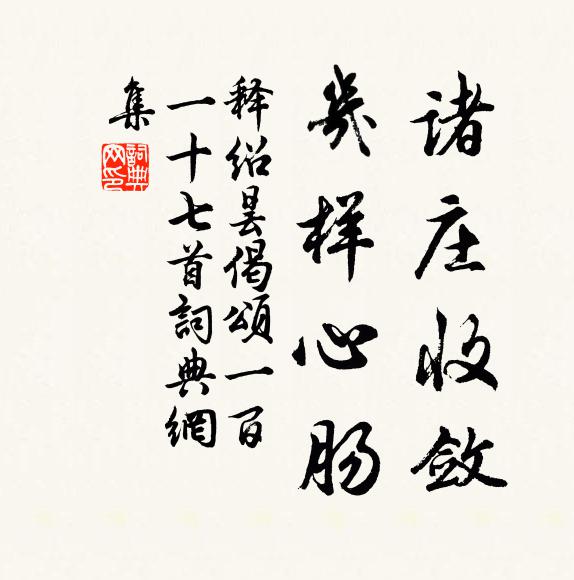 诸庄收敛
几样心肠
释绍昙偈颂一百
一十七首詞典網
集
詞典网印